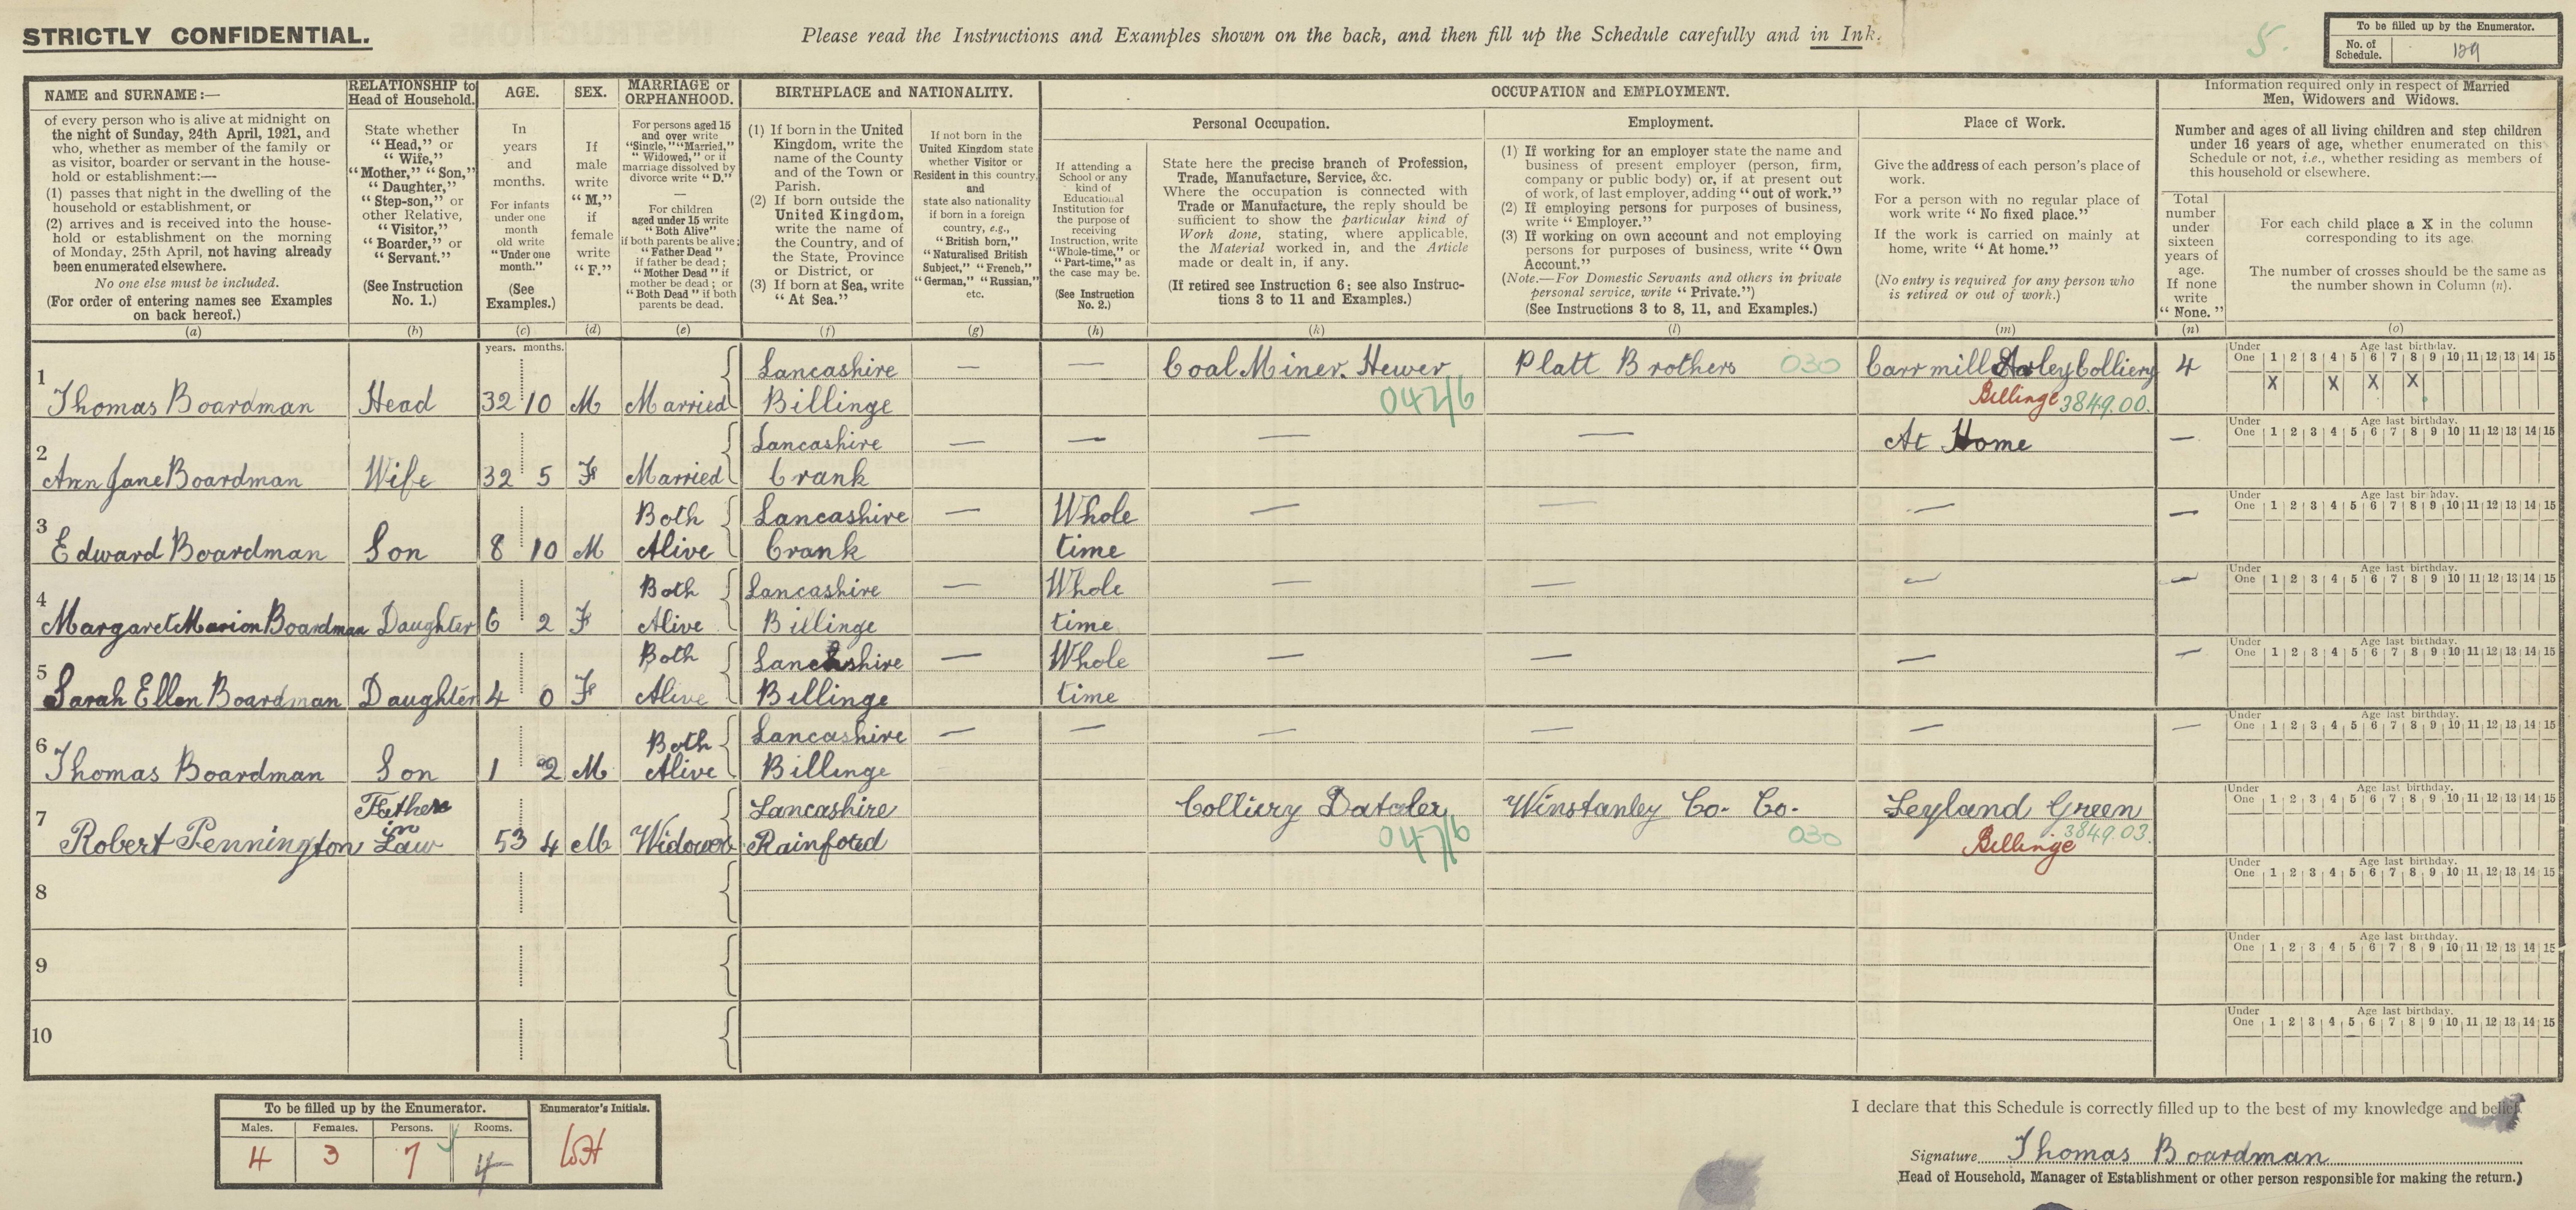 STRICTLY CONFIDENTIAL.
Please read the Instructions and Examples shown on the back, and then fill up the Schedule carefully and in Ink.
5.
To be filled up by the Enumerator.
No. of Schedule. 129
NAME and SURNAME:—
of every person who is alive at midnight on
the night of Sunday, 24th April, 1921, and
who, whether as member of the family or
as visitor, boarder or servant in the house-
hold or establishment:—
(1) passes that night in the dwelling of the
household or establishment, or
(2) arrives and is received into the house-
hold or establishment on the morning
of Monday, 25th April, not having already
been enumerated elsewhere.
No one else must be included.
(For order of entering names see Examples
on back hereof.)
(a)
RELATIONSHIP to
Head of Household.
State whether
"Head," or
"Wife,"
"Mother," "Son,"
"Daughter,"
"Step-son," or
other Relative,
"Visitor,"
"Boarder," or
"Servant."
(See Instruction
No. 1.)
(b)
AGE.
In
years
and
months.
For infants
under one
month
old write
"Under one
month."
(See
Examples.)
(c)
SEX.
If
male
write
"M,"
if
female
write
"F."
(d)
MARRIAGE or
ORPHANHOOD.
For persons aged 15
and over write
"Single," "Married,"
"Widowed," or if
marriage dissolved by
divorce write "D."
—
For children
aged under 15 write
"Both Alive"
if both parents be alive;
"Father Dead"
if father be dead;
"Mother Dead" if
mother be dead; or
"Both Dead" if both
parents be dead.
(e)
BIRTHPLACE and NATIONALITY.
(1) If born in the United
Kingdom, write the
name of the County
and of the Town or
Parish.
(2) If born outside the
United Kingdom,
write the name of
the Country, and of
the State, Province
or District, or
(3) If born at Sea, write
"At Sea."
(f)
If not born in the
United Kingdom state
whether Visitor or
Resident in this country,
and
state also nationality
if born in a foreign
country, e.g.,
"British born,"
"Naturalised British
Subject," "French,"
"German," "Russian,"
etc.
(g)
OCCUPATION and EMPLOYMENT.
If attending a
School or any
kind of
Educational
Institution for
the purpose of
receiving
Instruction, write
"Whole-time," or
"Part-time," as
the case may be.
(See Instruction
No. 2.)
(h)
Personal Occupation.
State here the precise branch of Profession,
Trade, Manufacture, Service, &c.
Where the occupation is connected with
Trade or Manufacture, the reply should be
sufficient to show the particular kind of
Work done, stating, where applicable,
the Material worked in, and the Article
made or dealt in, if any.
(If retired see Instruction 6; see also Instruc-
tions 3 to 11 and Examples.)
(k)
Employment.
(1) If working for an employer state the name and
business of present employer (person, firm,
company or public body) or, if at present out
of work, of last employer, adding "out of work."
(2) If employing persons for purposes of business,
write "Employer."
(3) If working on own account and not employing
persons for purposes of business, write "Own
Account."
(Note.—For Domestic Servants and others in private
personal service, write "Private.")
(See Instructions 3 to 8, 11, and Examples.)
(l)
Place of Work.
Give the address of each person's place of
work.
For a person with no regular place of
work write "No fixed place."
If the work is carried on mainly at
home, write "At home."
(No entry is required for any person who
is retired or out of work.)
(m)
Information required only in respect of Married
Men, Widowers and Widows.
Number and ages of all living children and step children
under 16 years of age, whether enumerated on this
Schedule or not, i.e., whether residing as members of
this household or elsewhere.
Total
number
under
sixteen
years of
age.
If none
write
"None."
(n)
For each child place a X in the column
corresponding to its age.
The number of crosses should be the same as
the number shown in Column (n).
(o)
years. months.
Under One Age last birthday. 1 2 3 4 5 6 7 8 9 10 11 12 13 14 15
1 Thomas Boardman Head 32 10 M Married Lancashire Billinge — — Coal Miner. Hewer 042/6 Platt Brothers 030 Carr mill Colliery Billinge 3849.00. 4 X X X X
Under One Age last birthday. 1 2 3 4 5 6 7 8 9 10 11 12 13 14 15
2 Ann Jane Boardman Wife 32 5 F Married Lancashire Crank — — — — At Home —
Under One Age last birthday. 1 2 3 4 5 6 7 8 9 10 11 12 13 14 15
3 Edward Boardman Son 8 10 M Both Alive Lancashire Crank — Whole time — — — —
Under One Age last birthday. 1 2 3 4 5 6 7 8 9 10 11 12 13 14 15
4 Margaret Marion Boardman Daughter 6 2 F Both Alive Lancashire Billinge — Whole time — — — —
Under One Age last birthday. 1 2 3 4 5 6 7 8 9 10 11 12 13 14 15
5 Sarah Ellen Boardman Daughter 4 0 F Both Alive Lancashire Billinge — Whole time — — — —
Under One Age last birthday. 1 2 3 4 5 6 7 8 9 10 11 12 13 14 15
6 Thomas Boardman Son 1 2 M Both Alive Lancashire Billinge — — — — — —
Under One Age last birthday. 1 2 3 4 5 6 7 8 9 10 11 12 13 14 15
7 Robert Pennington Father in Law 53 4 M Widower Lancashire Rainford Colliery Dataler 047/6 Winstanley Co. Co. 030 Leyland Green Billinge 3849.03.
Under One Age last birthday. 1 2 3 4 5 6 7 8 9 10 11 12 13 14 15
8
Under One Age last birthday. 1 2 3 4 5 6 7 8 9 10 11 12 13 14 15
9
Under One Age last birthday. 1 2 3 4 5 6 7 8 9 10 11 12 13 14 15
10
To be filled up by the Enumerator.
Enumerator's Initials.
Males. Females. Persons. Rooms.
4 3 7 4
I declare that this Schedule is correctly filled up to the best of my knowledge and belief.
Signature Thomas Boardman
Head of Household, Manager of Establishment or other person responsible for making the return.)